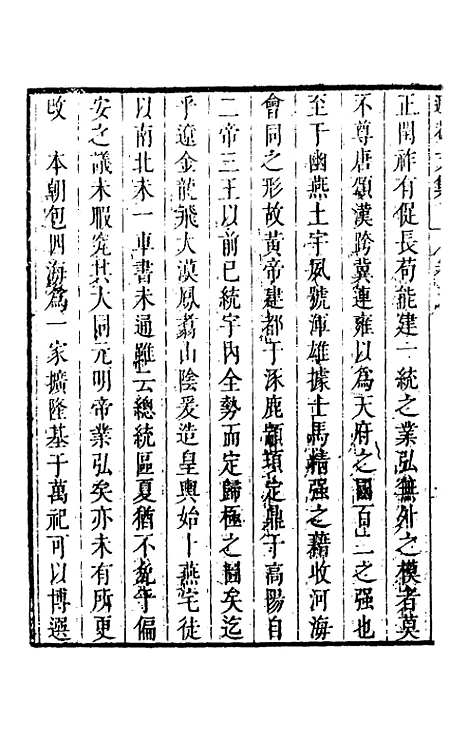 正閏祚有促長苟能建一統之業弘無外之模者莫
不尊唐頌漢跨冀連雍以為天府之國百二之强也
至于幽燕土宇風號渾雄據士馬精强之藉收河海
會同之形故黃帝建都于涿鹿顓頊定鼎于高陽自
二帝三王以前已統宇內全勢而定歸極之圖矣迄
乎遼金龍飛大漠鳳翥山陰爰造皇輿始卜燕宅徒
以南北未一車書未通雖云總統區夏猶不免于偏
安之議未暇究其大同元明帝業弘矣亦未有所更
改　本朝包四海為一家擴隆基于萬祀可以博選